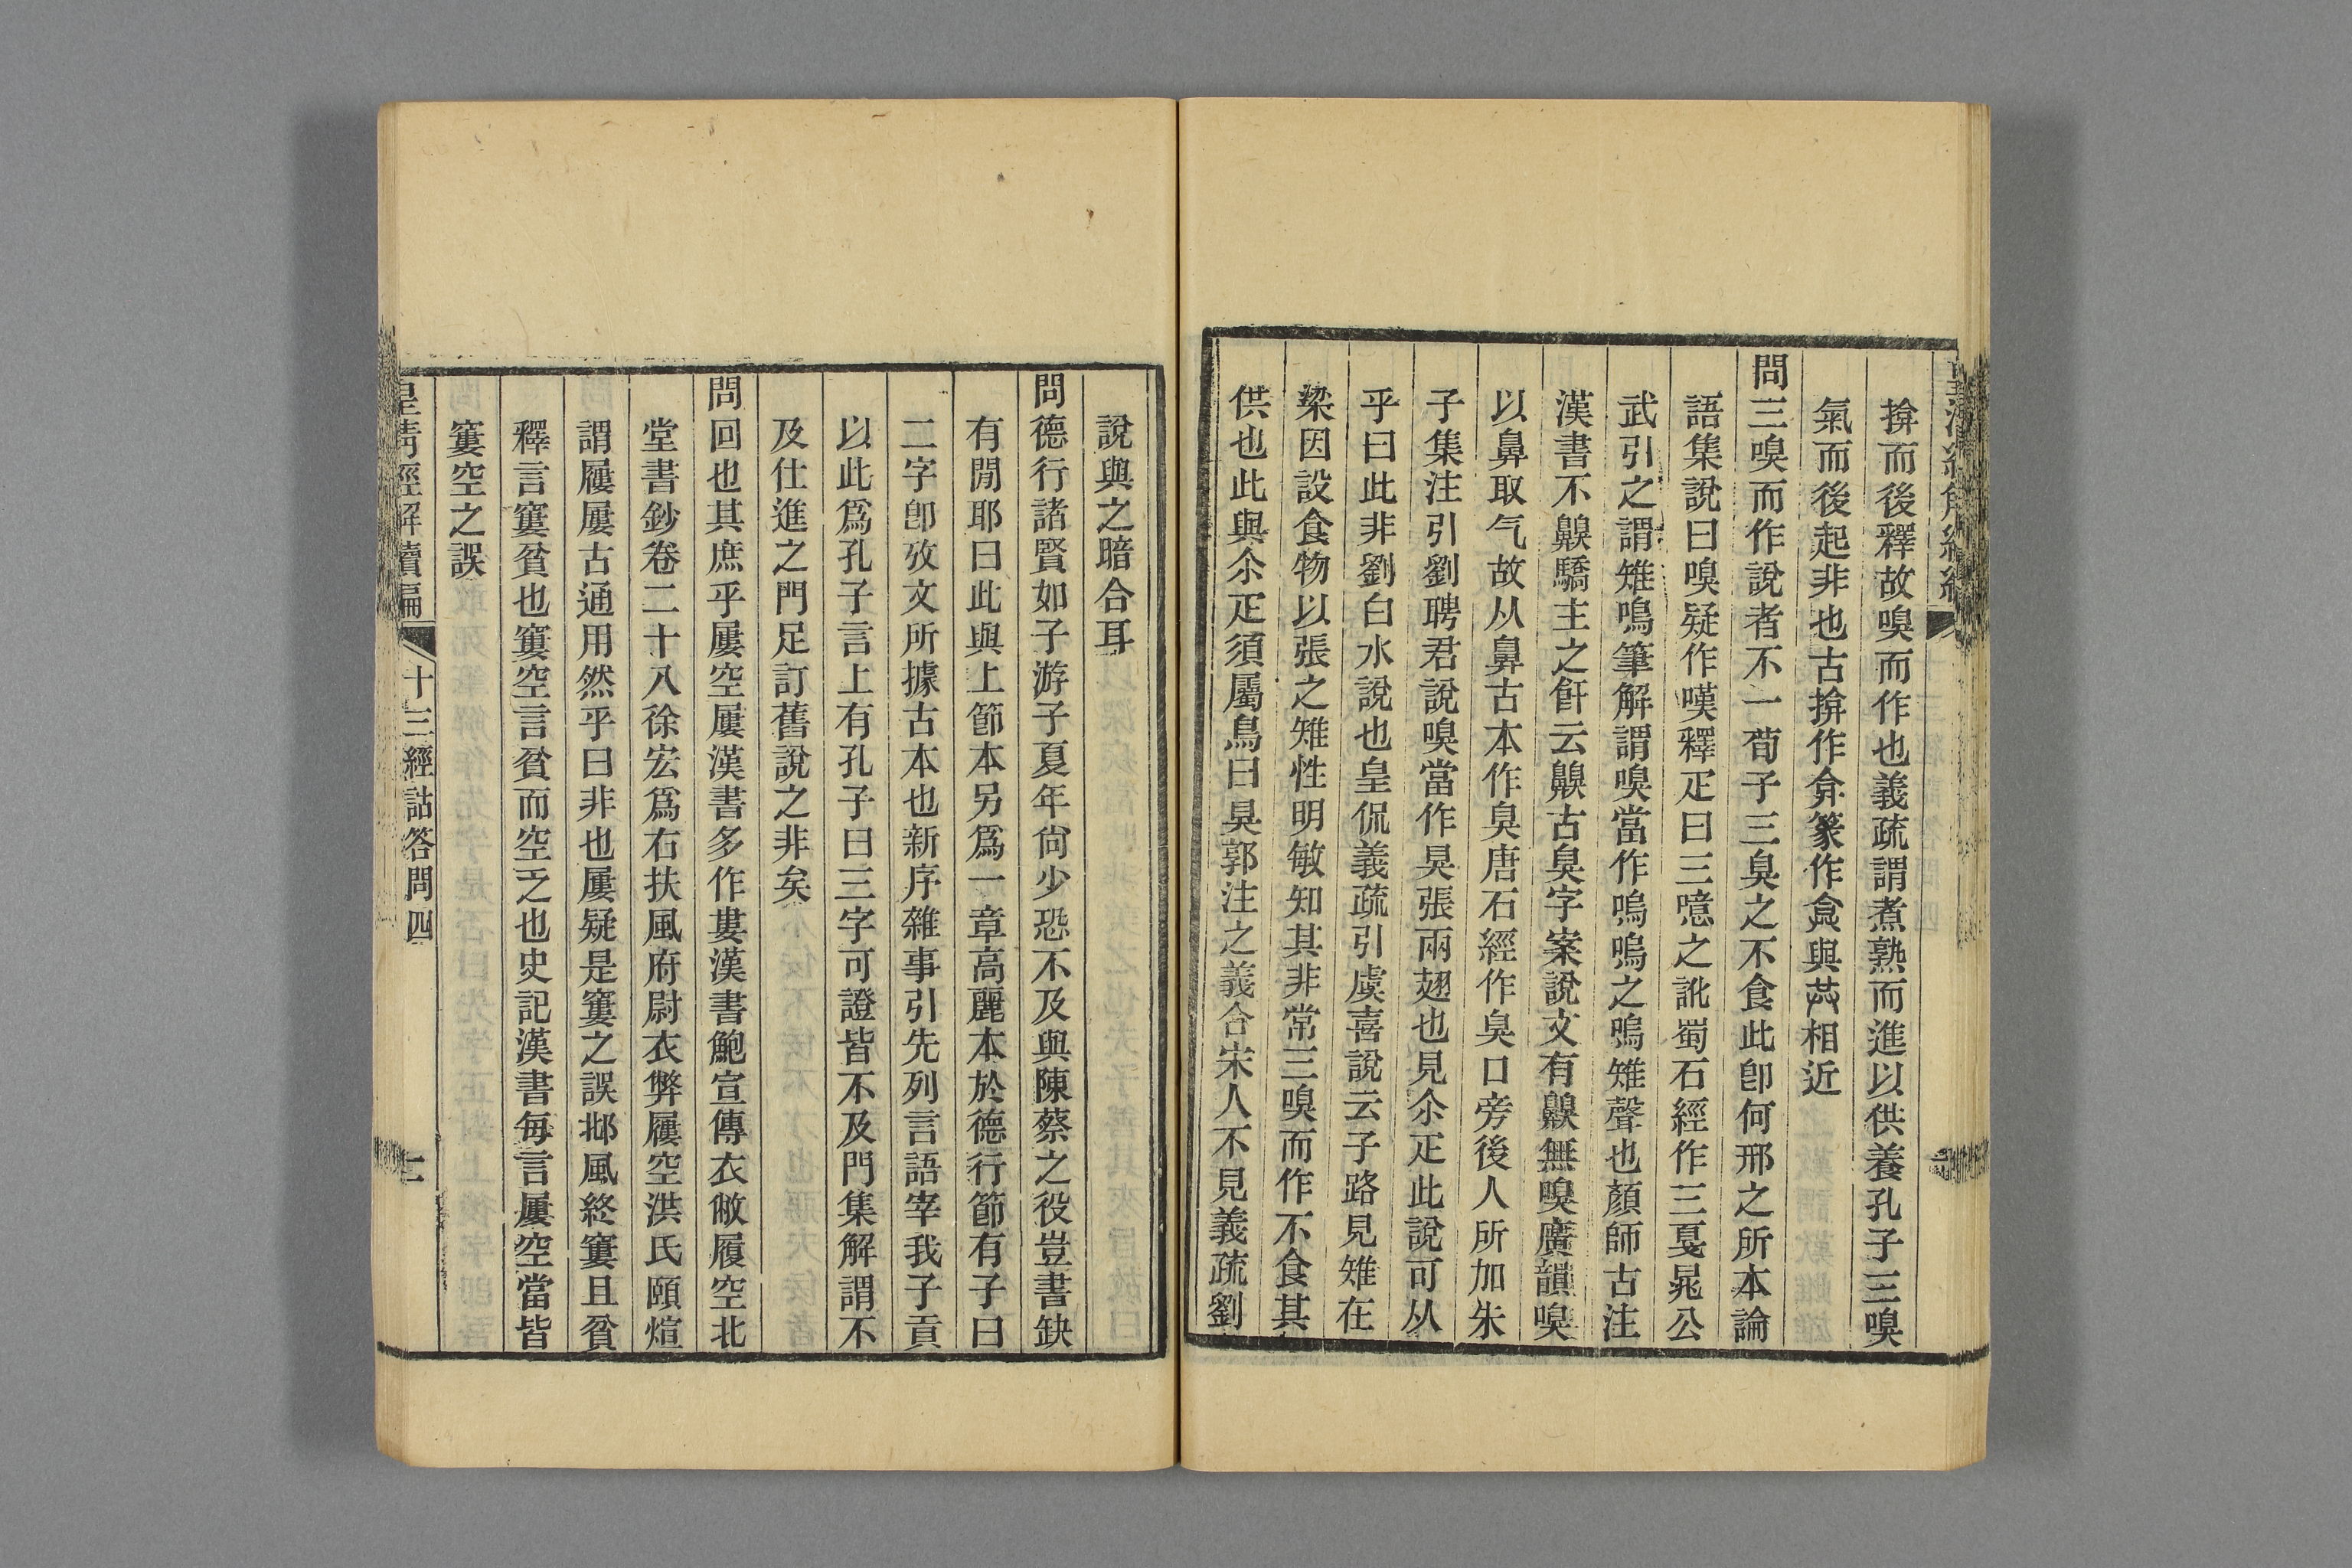 揜而後釋故嗅而作也義疏謂煮熟而進以供養孔子三嗅
氣而後起非也古揜作弇篆作與相近
問三嗅而作說者不一荀子三臭之不食此卽何邢之所本論
語集說曰嗅疑作嘆釋疋曰三噫之訛蜀石經作三戛晁公
武引之謂雉鳴筆解謂嗅當作嗚嗚之嗚雉聲也顏師古注
漢書不齅驕主之餌云齅古臭字案說文有齅無嗅廣韻嗅
以鼻取气故从鼻古本作臭唐石經作臭口旁後人所加朱
子集注引劉聘君說嗅當作狊張兩翅也見尒疋此說可从
乎曰此非劉白水說也皇侃義疏引虞喜說云子路見雉在
梁因設食物以張之雉性明敏知其非常三嗅而作不食其
供也此與尒疋須屬鳥曰狊郭注之義合宋人不見義疏劉
說與之暗合耳
問德行諸賢如子游子夏年尙少恐不及與陳蔡之役豈書缺
有閒耶曰此與上節本另爲一章高麗本於德行節有子曰
二字卽攷文所據古本也新序雜事引先列言語宰我子貢
以此爲孔子言上有孔子曰三字可證皆不及門集解謂不
及仕進之門足訂舊說之非矣
問回也其庶乎屢空屢漢書多作婁漢書鮑宣傳衣敝履空北
堂書鈔卷二十八徐宏爲右扶風府尉衣弊屨空洪氏頤煊
謂屨屢古通用然乎曰非也屢疑是窶之誤邶風終窶且貧
釋言窶貧也窶空言貧而空乏也史記漢書每言屢空當皆
窶空之誤
皇淸經解續編 十三經詁答問四